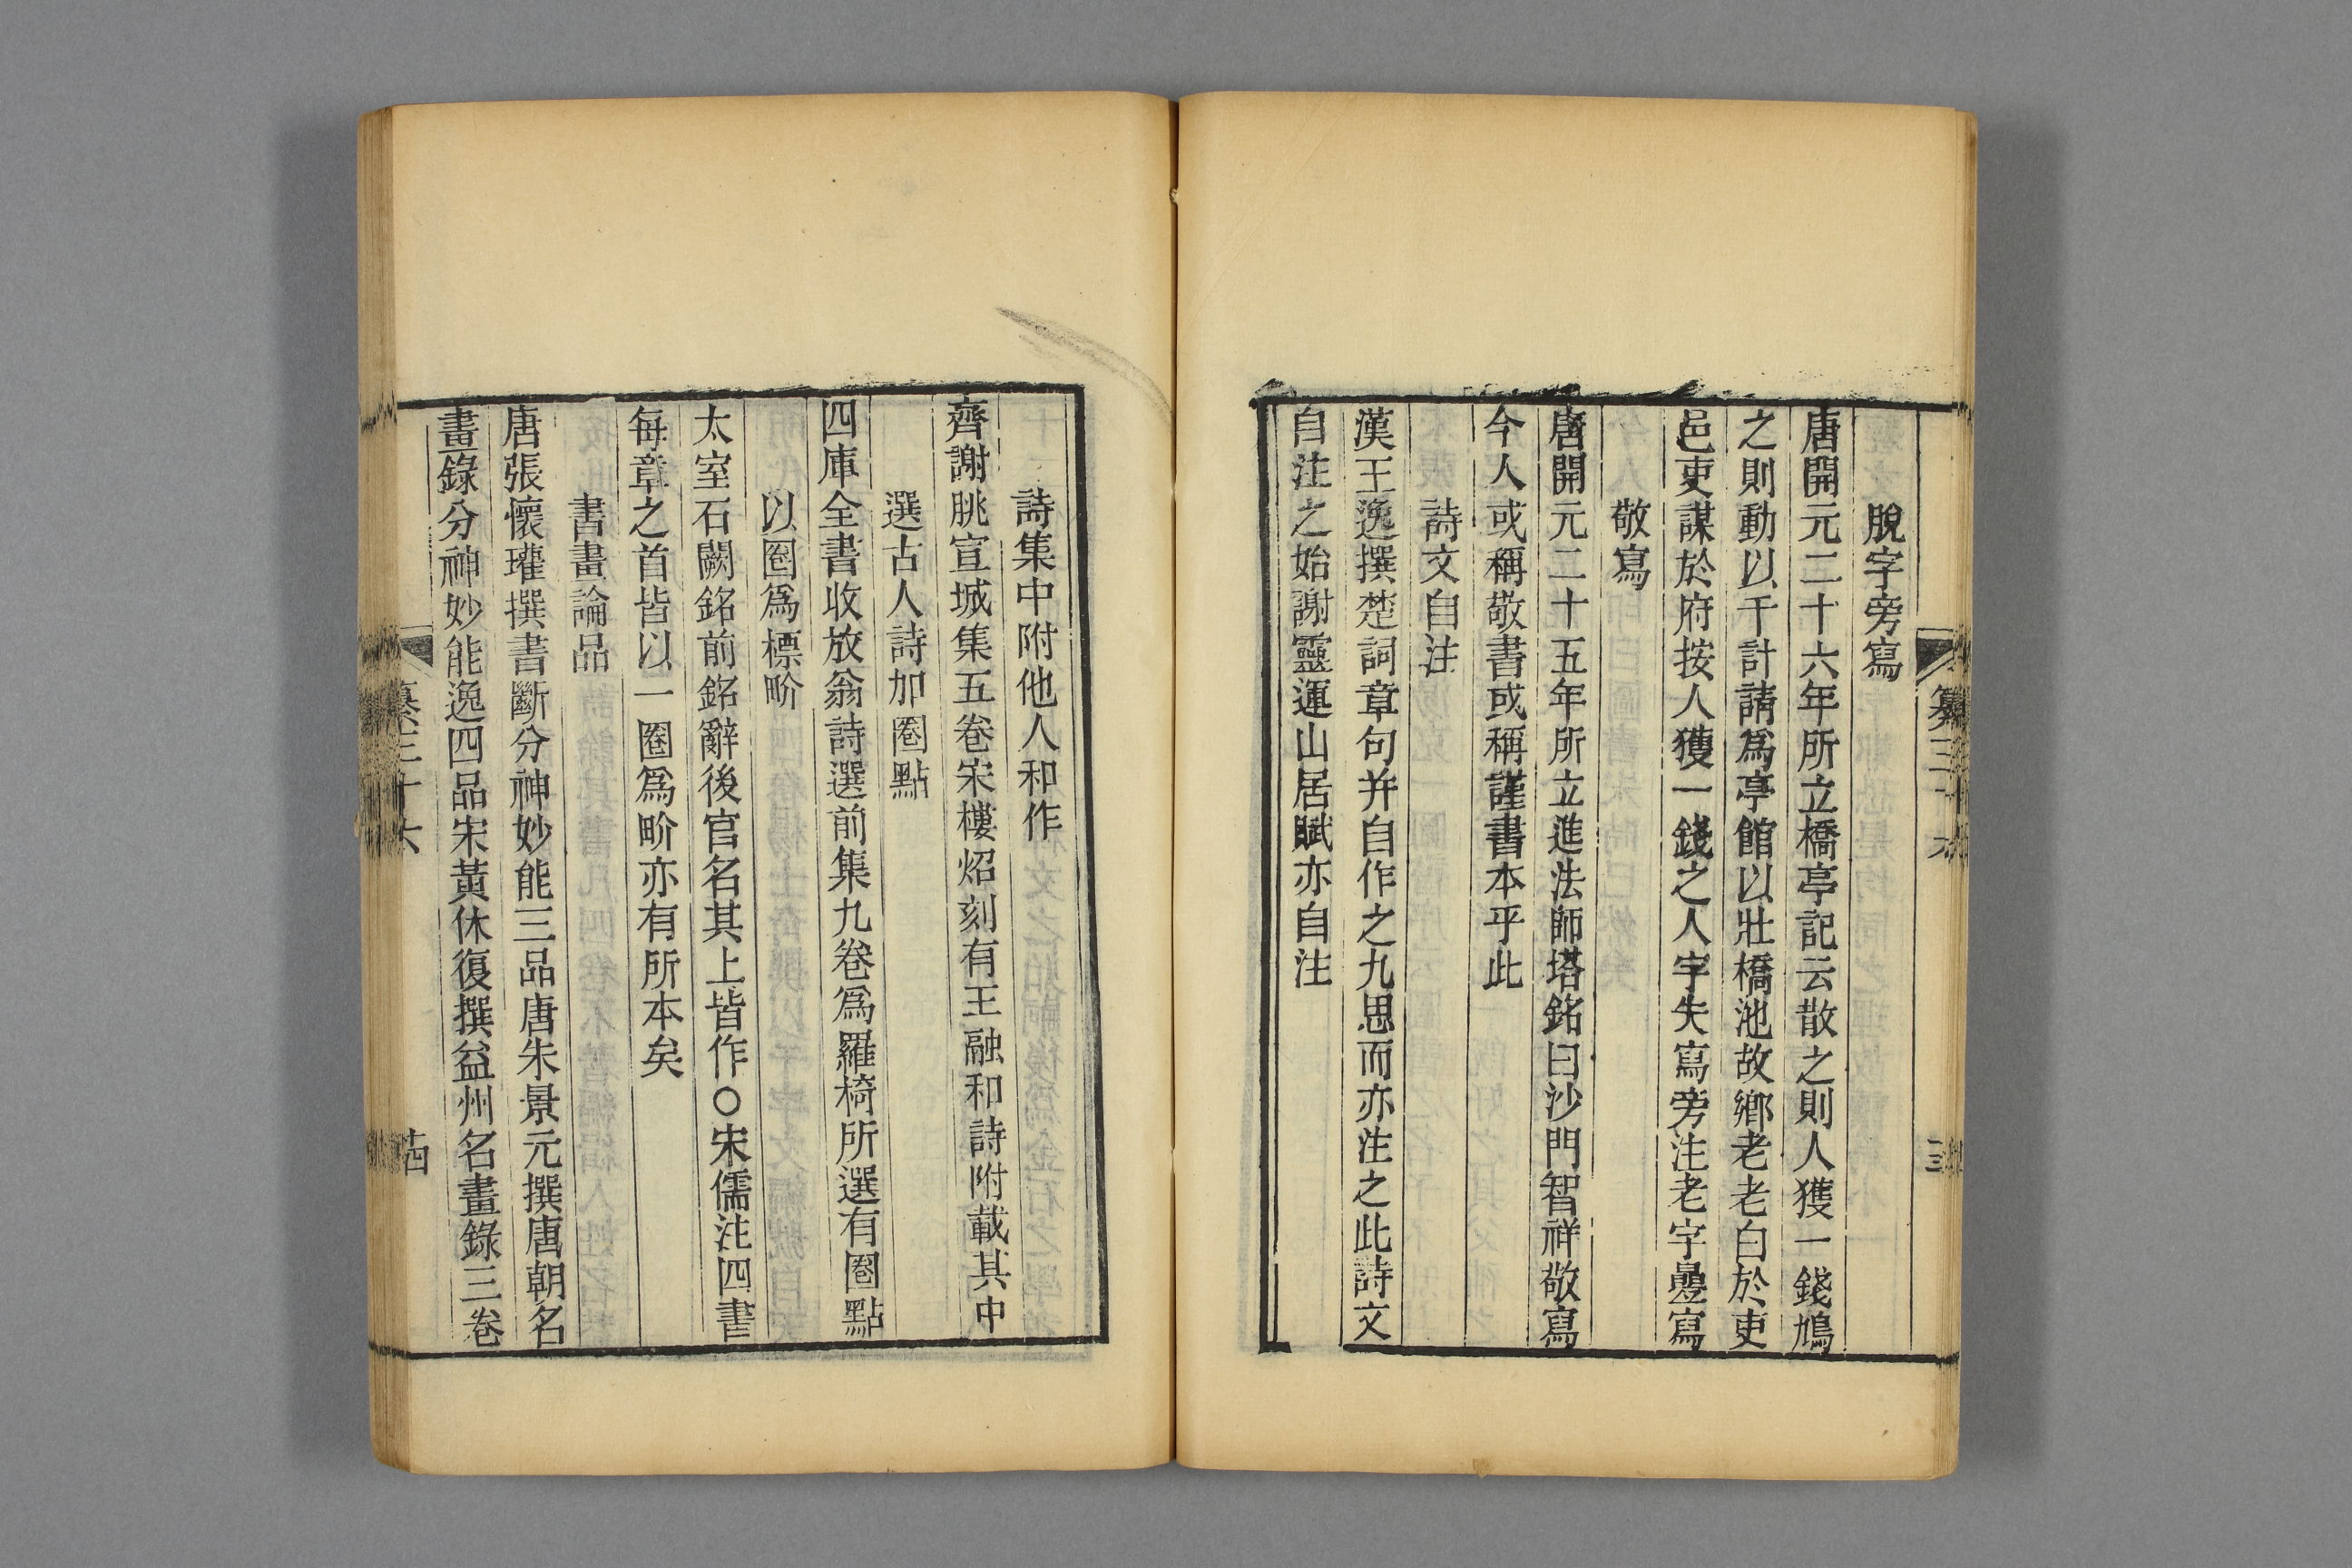 纂三十六
脫字旁寫
唐開元二十六年所立橋亭記云散之則人獲一錢鳩
之則動以千計請爲亭館以壯橋池故鄉老老白於吏
邑吏謀於府按人獲一錢之人字失寫旁注老字疊寫
敬寫
唐開元二十五年所立進法師塔銘曰沙門智祥敬寫
今人或稱敬書或稱謹書本乎此
詩文自注
漢王逸撰楚詞章句并自作之九思而亦注之此詩文
自注之始謝靈運山居賦亦自注
詩集中附他人和作
齊謝朓宣城集五卷宋樓炤刻有王融和詩附載其中
選古人詩加圈點
四庫全書收放翁詩選前集九卷爲羅椅所選有圈點
以圈爲標畍
太室石闕銘前銘辭後官名其上皆作○宋儒注四書
每章之首皆以一圈爲畍亦有所本矣
書畫論品
唐張懷瓘撰書斷分神妙能三品唐朱景元撰唐朝名
畫錄分神妙能逸四品宋黃休復撰益州名畫錄三卷
纂三十六